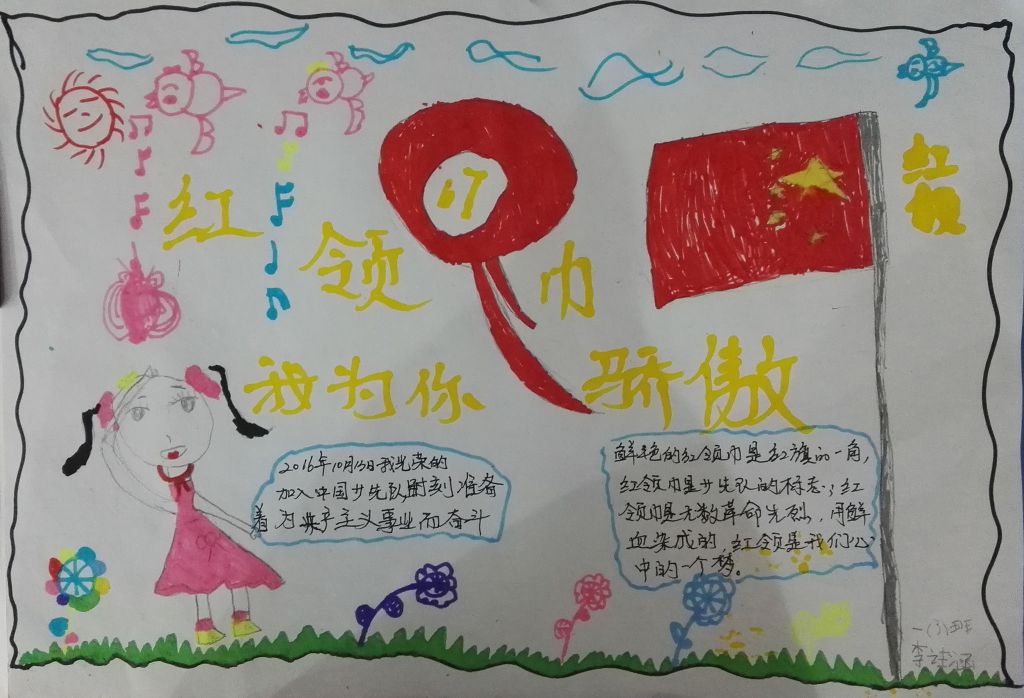 红领巾
我为你骄傲
2016年10月13日我光荣的
加入中国少先队时刻准备
着为共产主义事业而奋斗
鲜艳的红领巾是红旗的一角,
红领巾是少先队的标志,红
领巾是无数革命先烈,用鲜
血染成的,红领是我们心
中的一个梦。
一(3)班